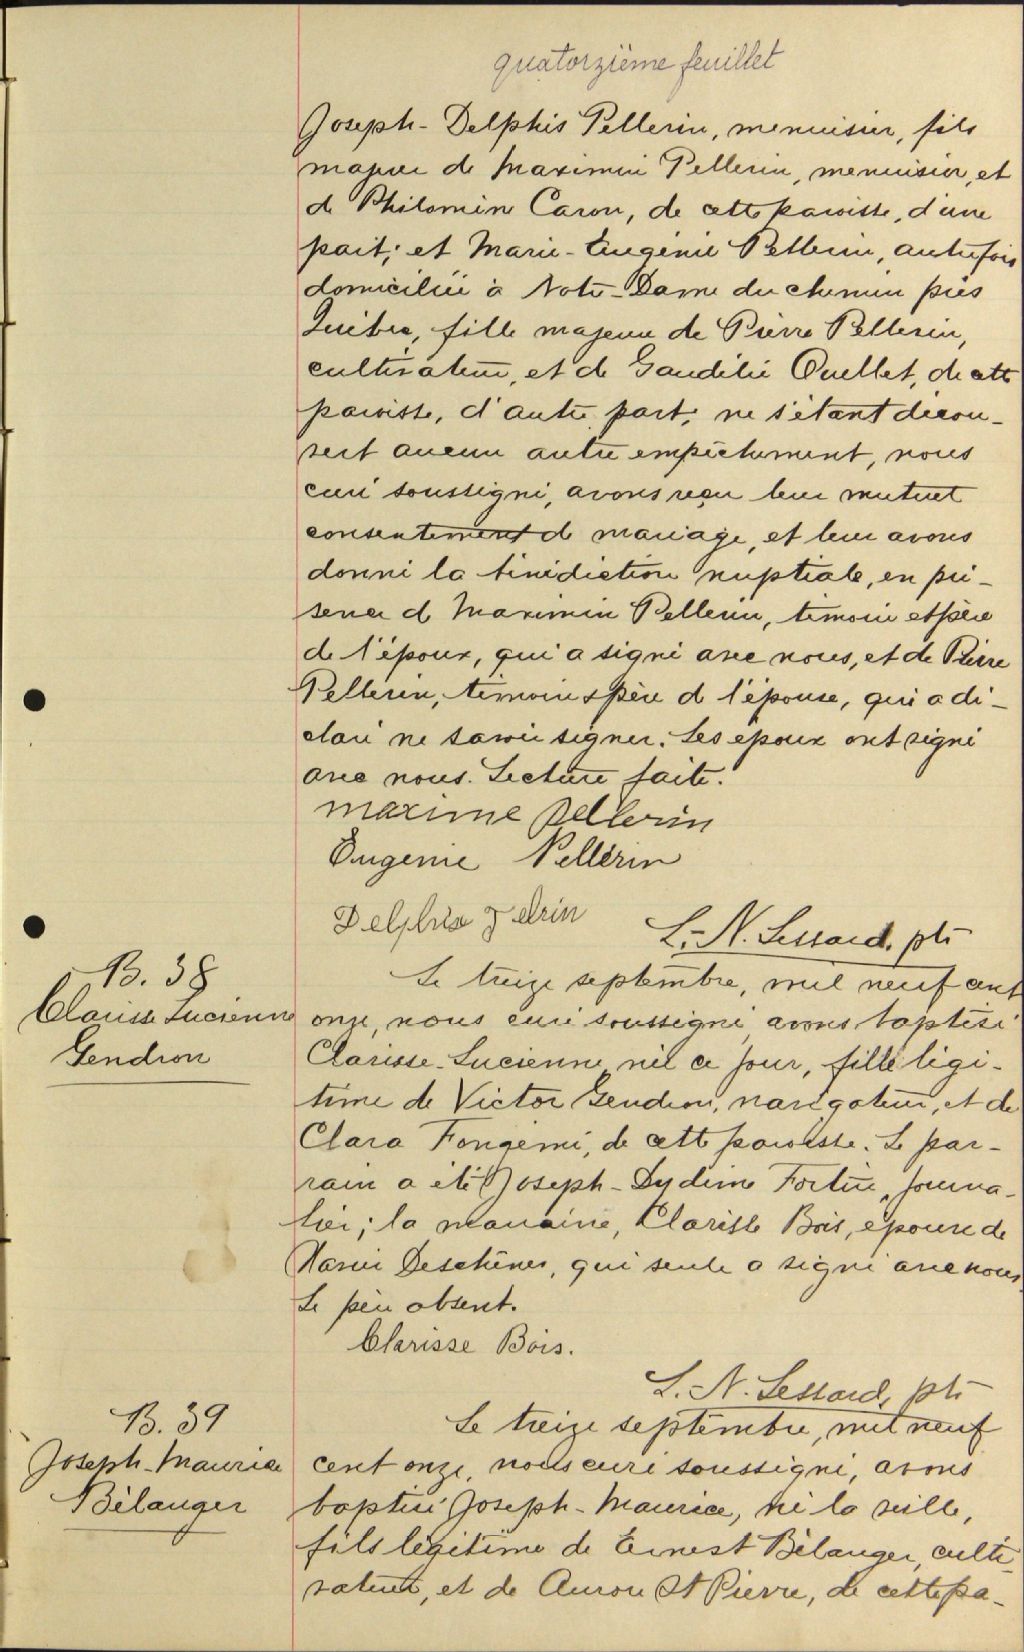 quatorzième feuillet
Joseph-Delphis Pellerin, menuisier, fils
majeur de Maximin Pellerin, menuisier, et
de Philomène Caron, de cette paroisse, d'une
part; et Marie-Eugénie Pellerin, autrefois
domiciliée à Notre-Dame du chemin près
Québec, fille majeure de Pierre Pellerin,
cultivateur, et de Gaudélie Ouellet, de cette
paroisse, d'autre part; ne s'étant décou-
vert aucun autre empêchement, nous
curé soussigné, avons reçu leur mutuel
consentement de mariage, et leur avons
donné la bénédiction nuptiale, en pré-
sence de Maximin Pellerin, témoin et père
de l'époux, qui a signé avec nous, et de Pierre
Pellerin, témoin & père de l'épouse, qui a dé-
claré ne savoir signer. Les époux ont signé
avec nous. Lecture faite.
Maxime Pellerin
Eugenie Pellérin
Delphis
L.-N. Lessard, ptre
B. 38
Clarisse Lucienne
Gendron
Le treize septembre, mil neuf cent
onze, nous curé soussigné, avons baptisé
Clarisse-Lucienne, née ce jour, fille légi-
time de Victor Gendron, navigateur, et de
Clara Fongémi, de cette paroisse. Le par-
rain a été Joseph-Dydime Fortin, journa-
lier; la marraine, Clarisse Bois, épouse de
Deschênes, qui seule a signé avec nous.
Le père absent.
Clarisse Bois.
L.-N. Lessard, ptre
B. 39
Joseph-Maurice
Bélanger
Le treize septembre, mil neuf
cent onze, nous curé soussigné, avons
baptisé Joseph-Maurice, né la veille,
fils légitime de Ernest Bélanger, culti-
vateur, et de Aurore St Pierre, de cette pa-